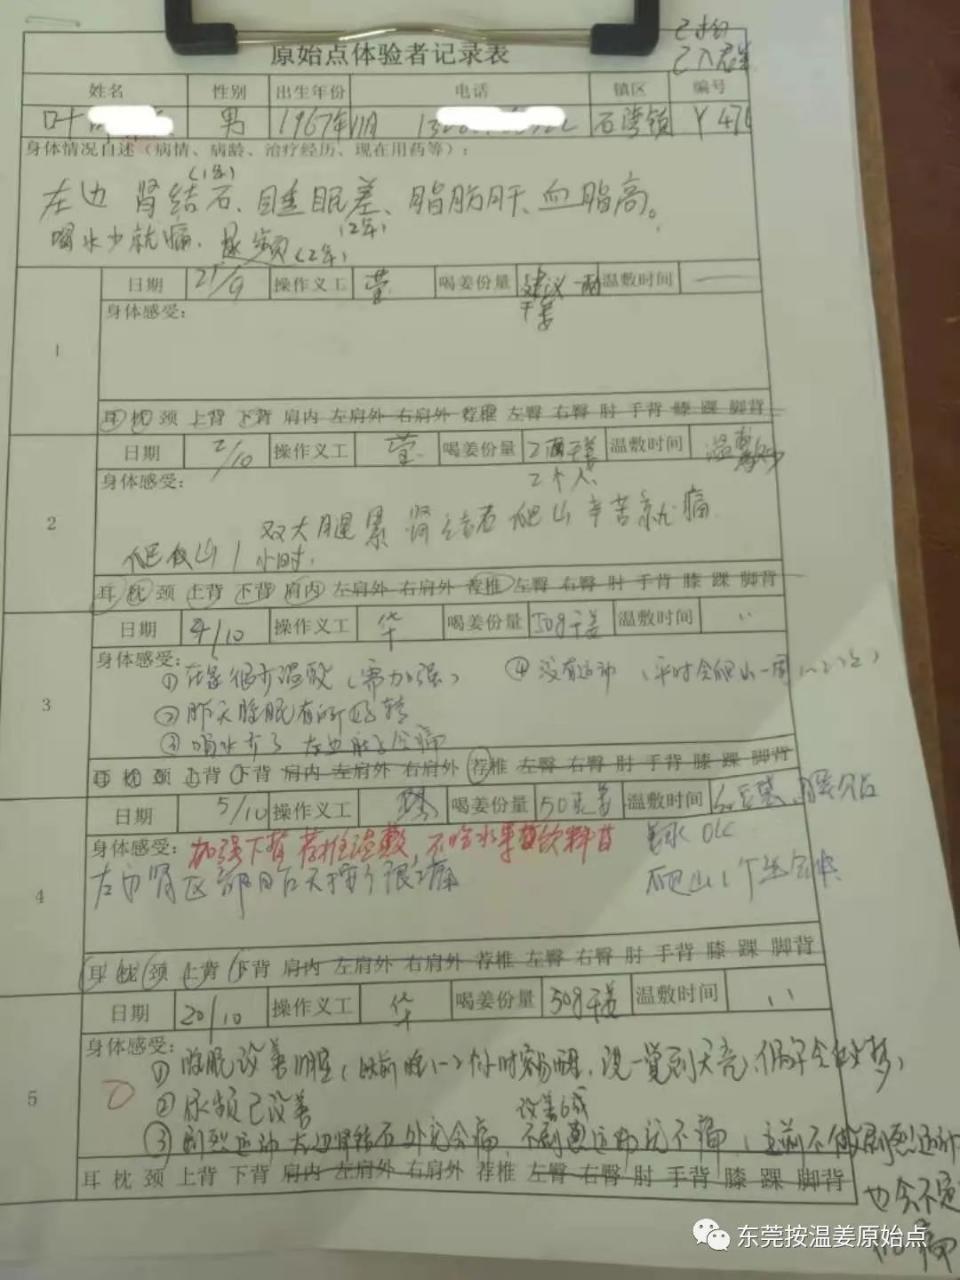 原始点体验者记录表
已入群
姓名 性别 出生年份 电话 镇区 编号
叶 男 1967年 石湾镇 Y 476
身体情况自述（病情、病龄、治疗经历、现在用药等）：
(1年)
左边 肾结石、睡眠差、脂肪肝、血脂高。
喝水少就痛、尿频(2年) (2年)
1
日期 21/9 操作义工 莹 喝姜份量 建议一两干姜 温敷时间 —
身体感受：
耳 枕 颈 上背 下背 肩内 左肩外 右肩外 荐椎 左臀 右臀 肘 手背 膝 踝 脚背
2
日期 2/10 操作义工 莹 喝姜份量 2两干姜 2个人 温敷时间 温敷少
身体感受：
双大腿累 肾结石 爬山辛苦就痛
爬 山1小时.
耳 枕 颈 上背 下背 肩内 左肩外 右肩外 荐椎 左臀 右臀 肘 手背 膝 踝 脚背
3
日期 4/10 操作义工 华 喝姜份量 50g干姜 温敷时间 ''
身体感受：
① 在家很少温敷（需加强） ④ 没有运动（平时会爬山一周1~2次）
② 昨天睡眠有所好转
③ 喝水少了 左边肚子会痛
耳 枕 颈 上背 下背 肩内 左肩外 右肩外 荐椎 左臀 右臀 肘 手背 膝 踝 脚背
4
日期 5/10 操作义工 喝姜份量 50克姜 温敷时间
身体感受：加强下背 荐椎温敷，不吃水果 饮料
姜水 OK
左边肾区部
爬山1个
耳 枕 颈 上背 下背 肩内 左肩外 右肩外 荐椎 左臀 右臀 肘 手背 膝 踝 脚背
5
日期 20/10 操作义工 华 喝姜份量 50g干姜 温敷时间 ''
身体感受：
① 睡眠改善明显（以前睡 小时容易醒，没一觉到天亮，偶尔会做梦）
② 尿频已改善
改善6成
③ 剧烈运动左边肾结石 会痛 不剧烈运动 不痛，之前不做剧烈运动
也会不定时痛
耳 枕 颈 上背 下背 肩内 左肩外 右肩外 荐椎 左臀 右臀 肘 手背 膝 踝 脚背
东莞按温姜原始点